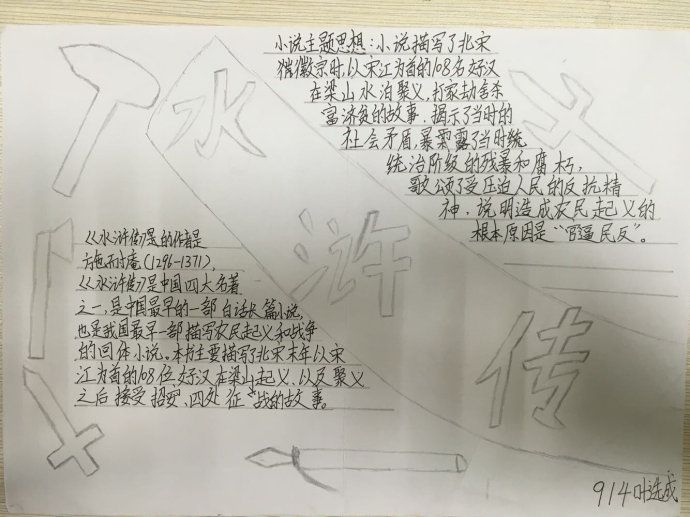 水
浒
传
小说主题思想：小说描写了北宋
徽宗时，以宋江为首的108名好汉
在梁山水泊聚义，打家劫舍杀
富济贫的故事．揭示了当时的
社会矛盾，暴露了当时统
统治阶级的残暴和腐朽，
歌颂了受压迫人民的反抗精
神，说明造成农民起义的
根本原因是“官逼民反”。
《水浒传》是的作者是
施耐庵(1296-1371)，
《水浒传》是中国四大名著
之一，是中国最早的一部白话长篇小说，
也是我国最早一部描写农民起义和战争
的回体小说。本书主要描写了北宋末年以宋
江为首的108位好汉在梁山起义，以及聚义
之后接受招安、四处征战的故事。
914叶选成